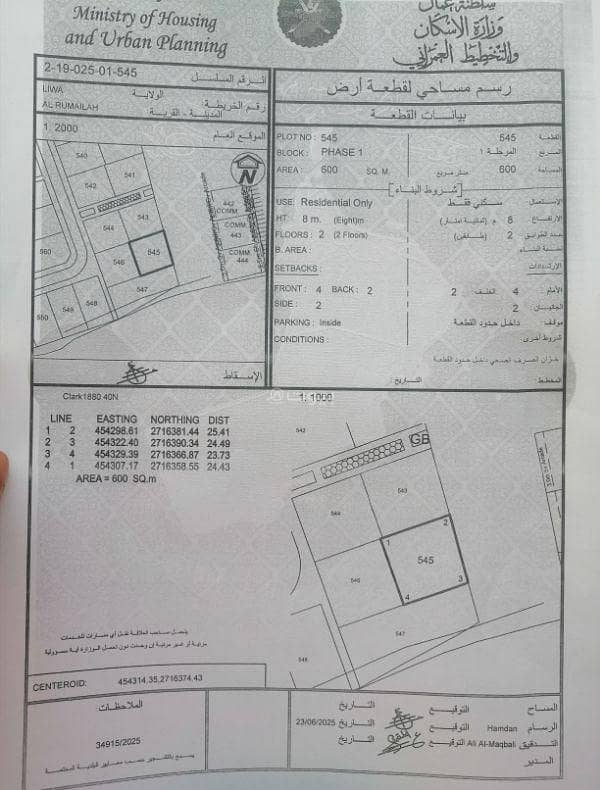 Ministry of Housing
and Urban Planning
سلطنة عمان
وزارة الإسكان
والتخطيط العمراني
2-19-025-01-545
الرقم المسلسل
LIWA
الولاية
رقم الخريطة
AL RUMAILAH
المدينة - القرية
1: 2000
الموقع العام
540
541
542
543
544
545
546
547
548
549
550
560
442
COMM.
COMM.
443
COMM.
444
N
الإسقاط
رسم مساحي لقطعة أرض
بيانات القطعة
PLOT NO : 545
545 القطعة
BLOCK : PHASE 1
المرحلة ١ المربع
AREA : 600 SQ. M.
متر مربع 600 المساحة
شروط البناء
USE: Residential Only
سكني فقط الاستعمال
HT: 8 m. (Eight)m
8 م (ثمانية أمتار) الارتفاع
FLOORS : 2 (2 Floors)
2 (طابقين) عدد الطوابق
B. AREA :
نسبة البناء
SETBACKS :
الارتدادات
FRONT : 4 BACK : 2
الأمام 4 الخلف 2
SIDE : 2
الجانبان 2
PARKING : Inside
موقف: داخل حدود القطعة
CONDITIONS :
شروط أخرى
خزان الصرف الصحي داخل حدود القطعة
المخطط : التاريخ :
Clark1880 40N
1: 1000
LINE EASTING NORTHING DIST
1 2 454298.61 2716381.44 25.41
2 3 454322.40 2716390.34 24.49
3 4 454329.39 2716366.87 23.73
4 1 454307.17 2716358.55 24.43
AREA = 600 SQ.m
542
GB
543
544
1
2
545
546
3
4
547
548
يتحمل صاحب العلاقة نقل أي مضارات للخدمات
مرئية أو غير مرئية إن وجدت دون تحمل الوزارة أية مسؤولية
CENTEROID: 454314.35,2716374.43
الملاحظات
34915/2025
المساح التوقيع التاريخ
الرسام Hamdan التوقيع التاريخ 23/06/2025
التدقيق Ali Al-Maqbali التوقيع التاريخ
المدير